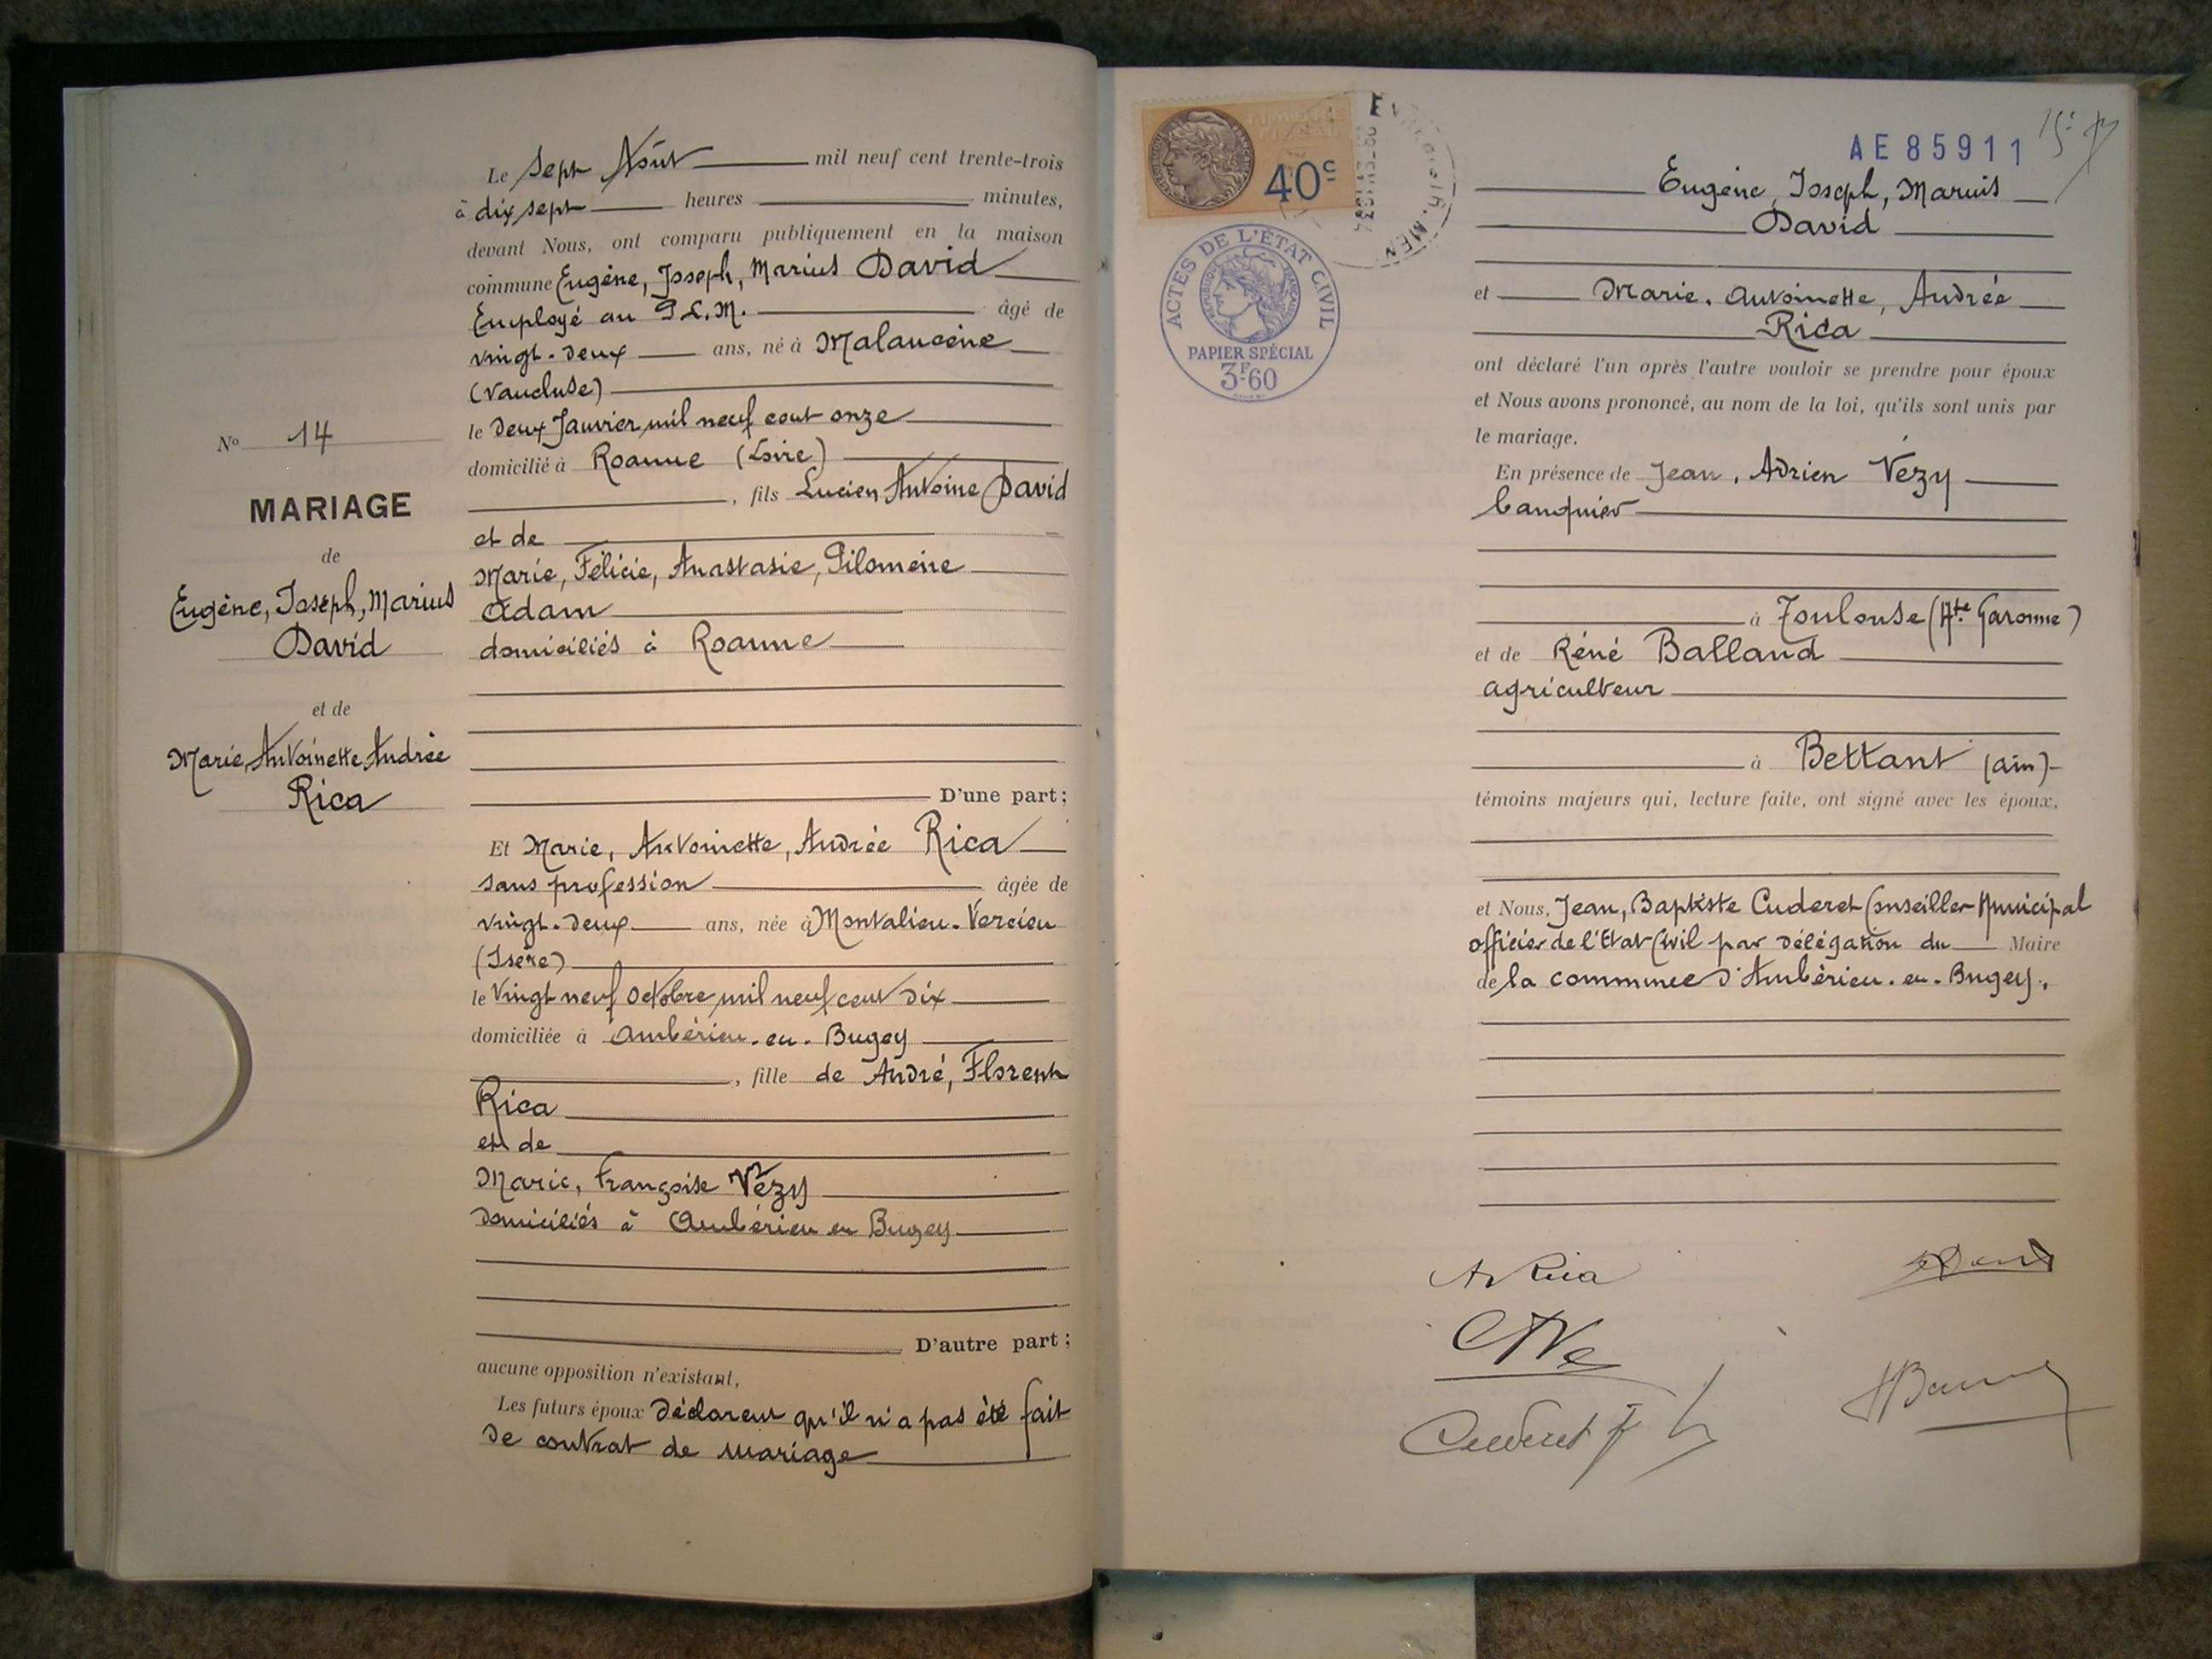 N° 14
MARIAGE
de
Eugène, Joseph, Marius
David
et de
Marie, Antoinette, Andrée
Rica
Le Sept Août mil neuf cent trente-trois
à dix sept heures minutes,
devant Nous, ont comparu publiquement en la maison
commune Eugène, Joseph, Marius David
Employé au P.L.M. âgé de
vingt-deux ans, né à Malaucène
(Vaucluse)
le deux Janvier mil neuf cent onze
domicilié à Roanne (Loire)
, fils Lucien Antoine David
et de
Marie, Félicie, Anastasie, Pilomène
Adam
domiciliés à Roanne
D'une part;
Et Marie, Antoinette, Andrée Rica
sans profession âgée de
vingt-deux ans, née à Montalieu-Vercieu
(Isère)
le Vingt neuf Octobre mil neuf cent dix
domiciliée à Ambérieu-en-Bugey
, fille de André, Florent
Rica
et de
Marie, Françoise Vézy
domiciliés à Ambérieu en Bugey
D'autre part;
aucune opposition n'existant,
Les futurs époux déclarent qu'il n'a pas été fait
de contrat de mariage
40c
ACTES DE L'ÉTAT CIVIL
PAPIER SPÉCIAL
3F.60
AE 85911
Eugène, Joseph, Marius
David
et Marie, Antoinette, Andrée
Rica
ont déclaré l'un après l'autre vouloir se prendre pour époux
et Nous avons prononcé, au nom de la loi, qu'ils sont unis par
le mariage.
En présence de Jean, Adrien Vézy
banquier
à Toulouse (Hte Garonne)
et de Réné Balland
agriculteur
à Bettant (ain)
témoins majeurs qui, lecture faite, ont signé avec les époux,
et Nous, Jean, Baptiste Cuderet Conseiller Municipal
officier de l'Etat Civil par délégation du Maire
de la commune d'Ambérieu-en-Bugey.
A Rica
Cuderet